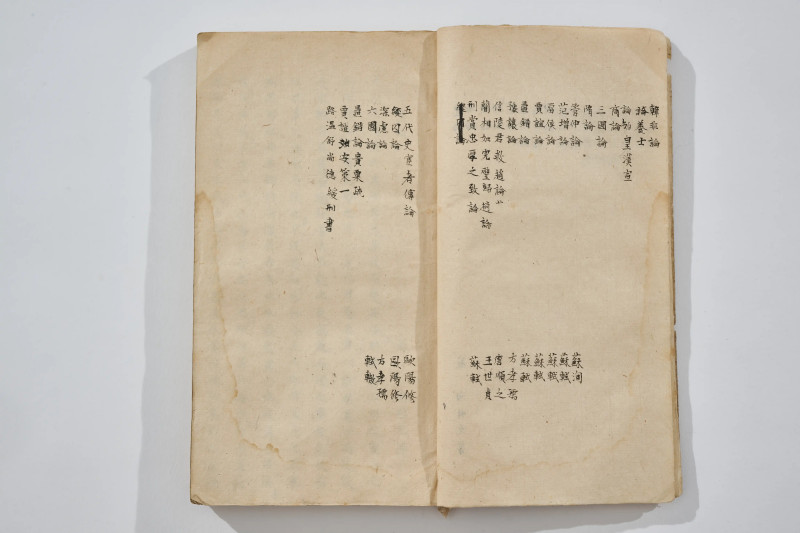 韓非論
論養士
論始皇漢宣
商論
三國論
隋論
管仲論 蘇洵
范增論 蘇軾
留侯論 蘇軾
賈誼論 蘇軾
晁錯論 蘇軾
豫讓論 方孝孺
信陵君救趙論 唐順之
藺相如完璧歸趙論 王世貞
刑賞忠厚之致論 蘇軾
五代史宦者傳論 歐陽修
縱囚論 歐陽修
深慮論 方孝孺
六國論 蘇轍
晁錯論貴粟疏
賈誼治安策一
路溫舒尚德緩刑書